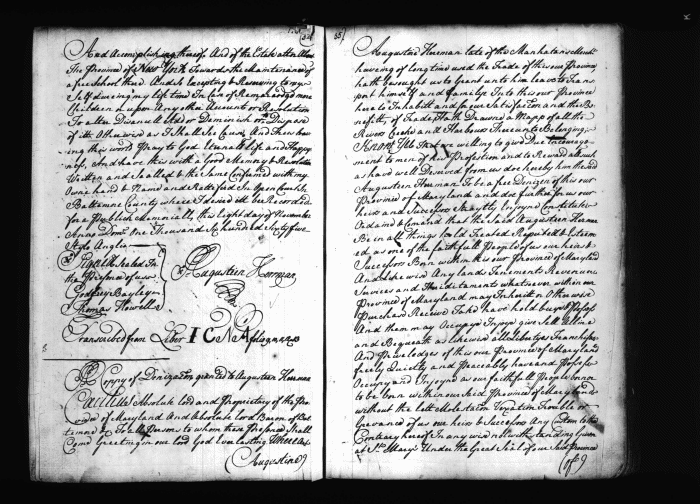 54
And Accomplishing thereof, And of the Estate att
The Province of New York Towards the Maintenance of
a free school there And is Excepting & Reserving to my
Self dureing my life time In Case of Remarrage & more
Children or upon Any other Account or Resolution
To alter Disanull Add or Deminish or Dispose
of itt Otherwise as I Shall See Cause, And Then
ing this word Pray to God Eternall life and Happy
ness, And have this with a Good Memory & Resolution
Written and Sealled & the Same Confirmed with my
Owne hand & Name and Rattefied In Open Court In
Baltimore County where I desired itt be Recorded
for a Publick Memorially this Eight day of November
Anno Dom. One Thousand Six hundred Sixty five
Stylo Anglia
Sign'd & Sealed In
the Presence of us
Godfrey Bayley
Thomas Howell
Augusteen Herman
Transcribed from Liber I C N A folio
Coppy of Denization granted to Augusteen Herman
Absolute Lord and Proprietary of the Pro
vince of Maryland And Absolute Lord Baron of Bal
temore & To all Persons to whom these Presence Shall
Come Greeting in our Lord God Everlasting Whereas
Augustine
55
Augustine Herman late of the Manhatans Merch.
haveing of long time used the Trade of this our Province
hath besought us to Grant unto him leave to Trans
port himself and family In to this our Province
here to Inhabitt and for our Satisfaction and the Be
nefitt of Trade Hath Drawne a Mapp of all the
Rivers Creeks and Harbours thereunto Belonging,
Know Yee that we willing to give Due Encourage
ment to men of his Profession and to Reward all such
as have well Deserved from us doe hereby him the said
Augusteen Herman To be a free Denizen of this our
Province of Maryland and doe further for us our
heirs and Successors Straytly Enjoyne Constitute
Ordaine & Command that the said Augusteen Herman
Be in all things Held Treated Reputed & Esteem
ed as one of the faithfull People of us our heirs &
Successors Born within this our Province of Maryland
And likewise Any lands Tenements Revenues
Services and Hereditaments whatsoever within our
Province of Maryland may Inheritt or Otherwise
Purchase Receive Take have hold buy & Possess
And them may Occupye Injoye give Sell Aliene
and Bequeath as likewise all Libertys Franchises
And Priveledges of this our Province of Maryland
freely Quietly and Peaceably have and Possess
Occupy and Enjoy as our faithfull People borne
to be born within our said Province of Maryland
without the lett Molestation Vexation Trouble or
Grevance of us our heirs & Successors Any Custom to the
Contrary hereof In any wise notwithstanding Given
at St. Marys Under the Great Seal of our Said Province
of